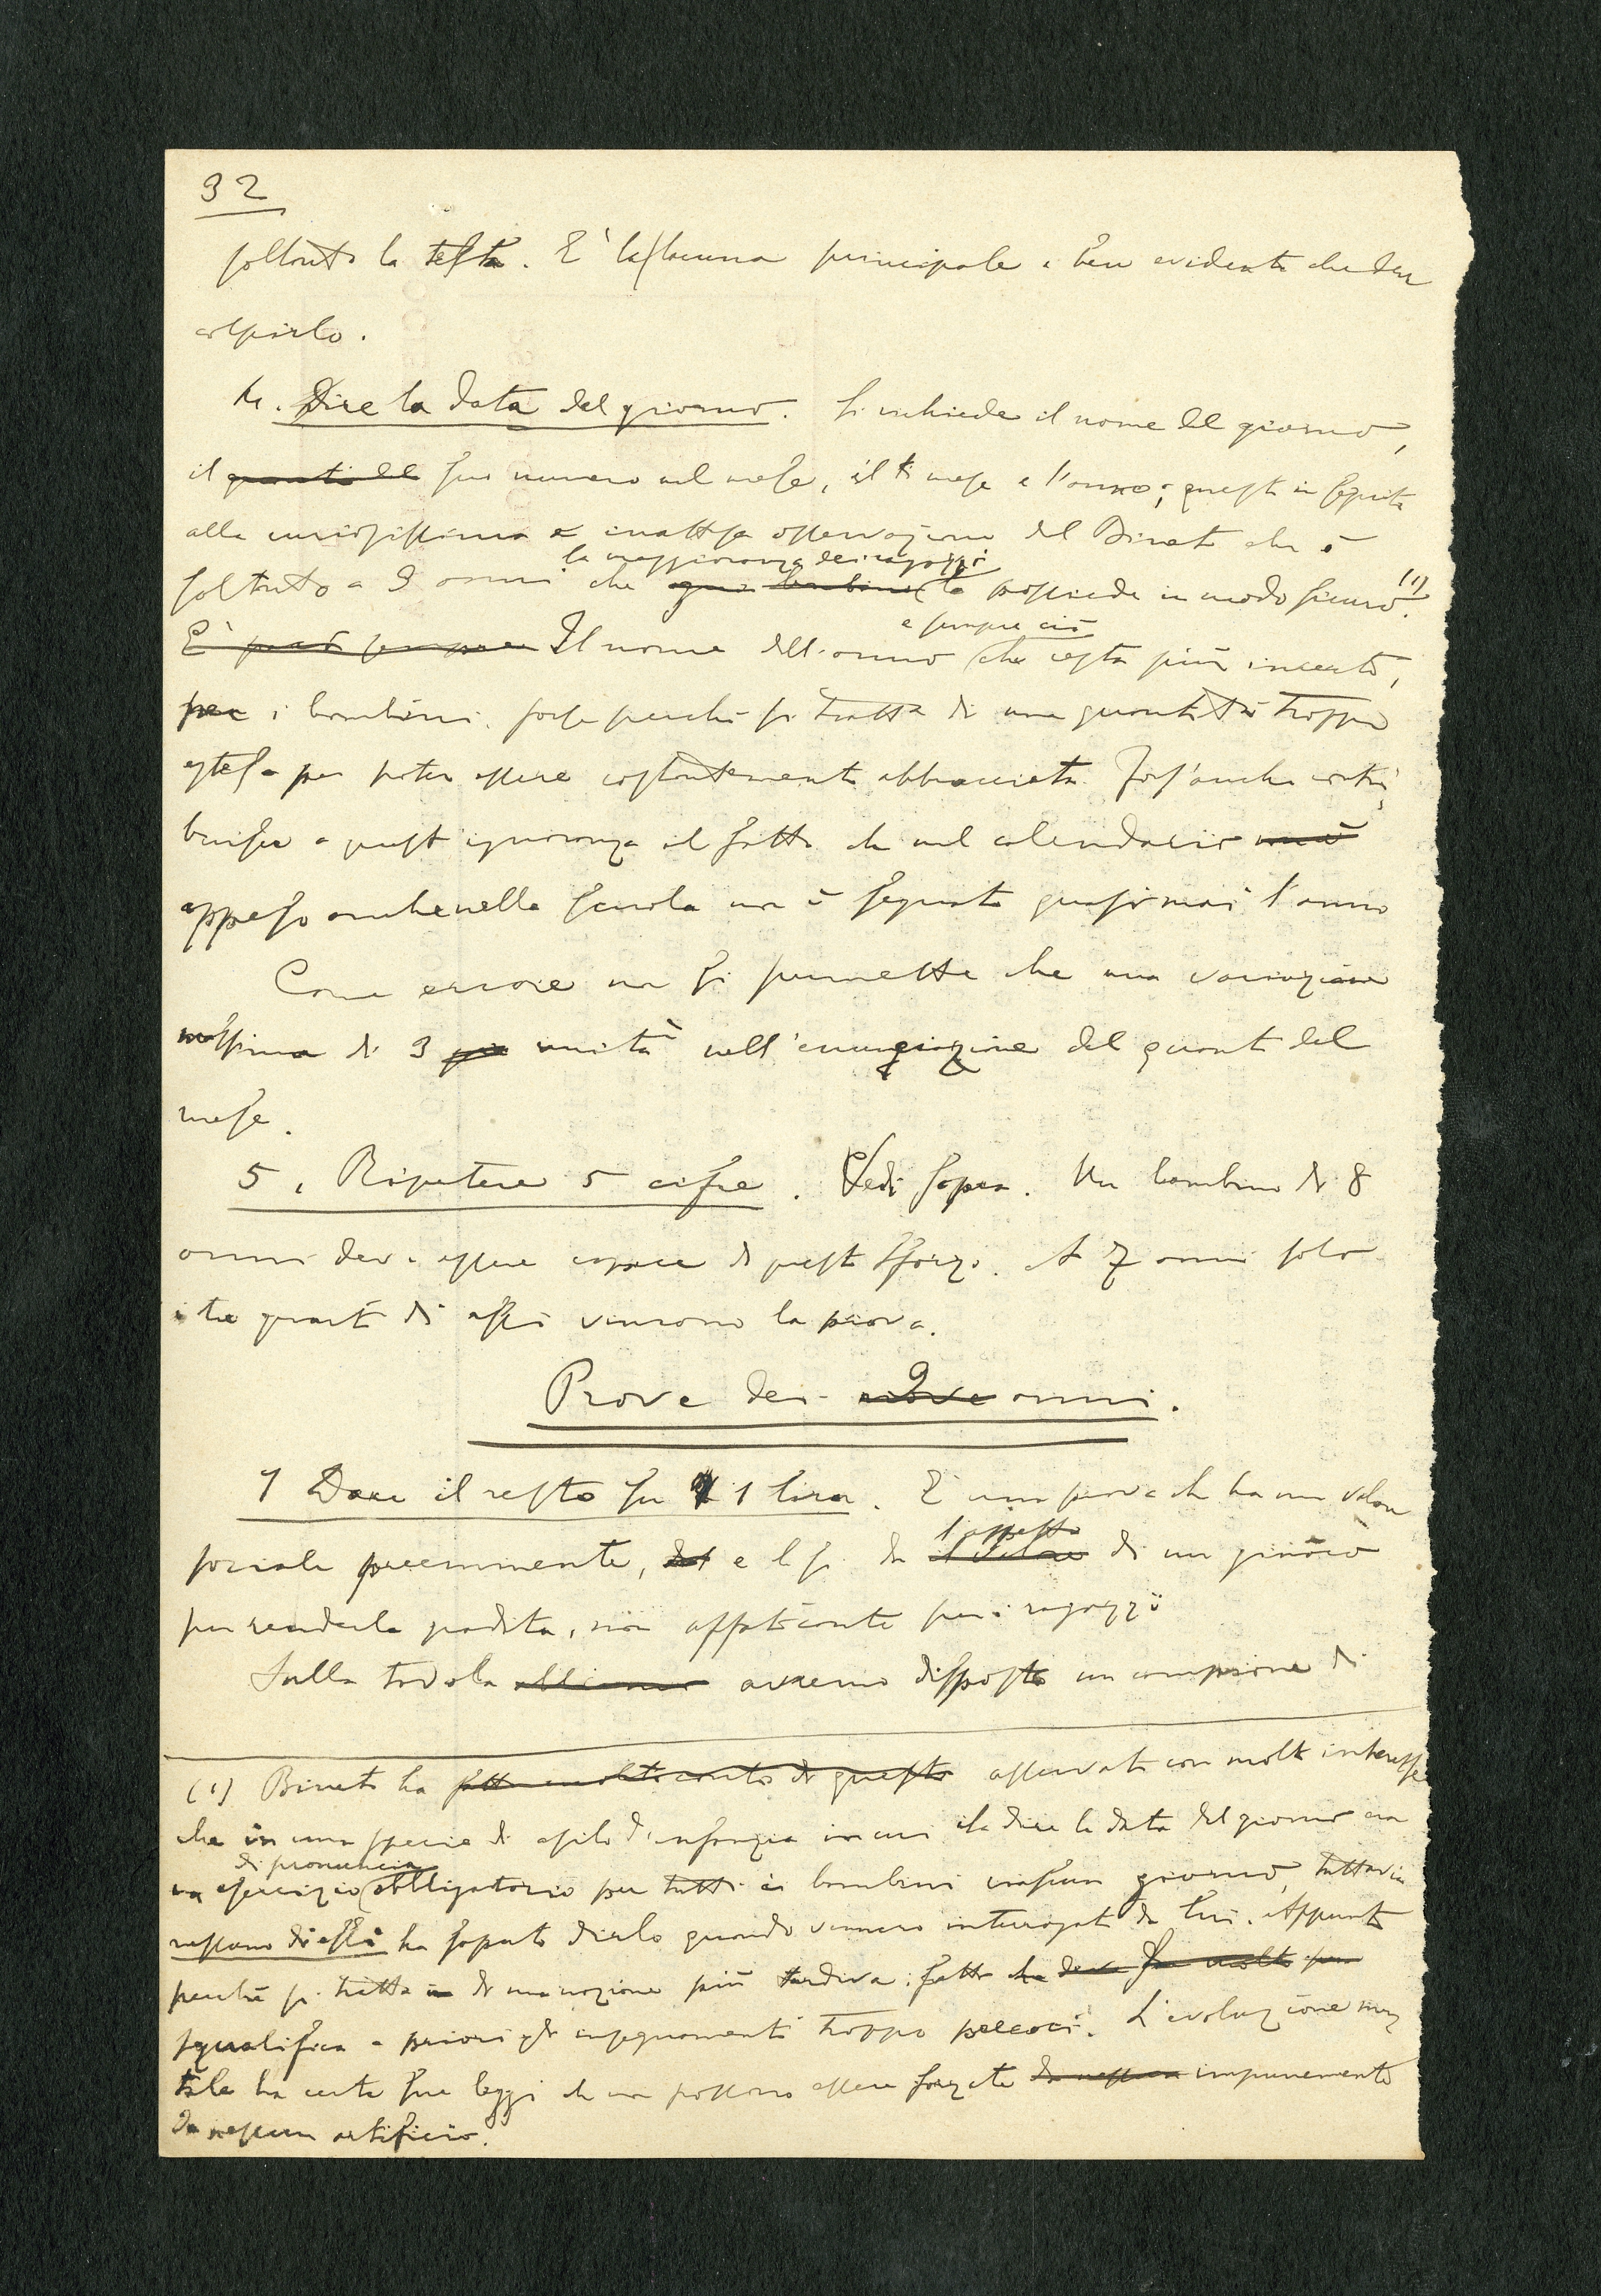 32
soltanto la testa. E' la lacuna principale e ben evidente che deve
colpirlo.
4. Dire la data del giorno. Si richiede il nome del giorno,
il quanti del suo numero nel mese, il mese e l'anno; questo in seguito
alla curiosissima e inattesa osservazione del Binet che è
la maggioranza dei ragazzi
soltanto a 9 anni che ogni bambino la possiede in modo sicuro. (1)
è sempre ciò
E' però sempre Il nome dell'anno che resta più incerto,
per i bambini, forse perchè si tratta di una quantità troppo
estesa per poter essere costantemente abbracciata. Fors'anche contri
buisce a quest'ignoranza il fatto che nel calendario
appeso anche nella scuola non è segnato quasi mai l'anno
Come errore non si permette che una variazione
massima di 3 unità nell'enunciazione del quanti del
mese.
5. Ripetere 5 cifre. Vedi sopra. Un bambino di 8
anni deve essere capace di questo sforzo. A 7 anni solo
i tre quarti di essi vincono la prova.
Prove dei nove 9 anni.
1 Dare il resto su 1 lira. E' una prova che ha un valore
l'aspetto
sociale preeminente, e le si da il valore di un giuoco
per renderla gradita, non affaticante per i ragazzi
Sulla tavola avremo disposto un campione di
(1) Binet ha fatto molto conto di questo osservato con molto interesse
che in una specie di asilo d'infanzia in cui il dire la data del giorno era
di pronuncia
un esercizio obbligatorio per tutti i bambini ciascun giorno, tuttavia
nessuno di essi ha saputo dirlo quando vennero interrogati da lui. Appunto
perchè si tratta di una nozione più tardiva: fatto che deve far molto per
squalifica a priori gli insegnamenti troppo precoci. L'evoluzione men
tale ha certe sue leggi che non possono essere forzate da nessun impunemente
da nessun artificio.